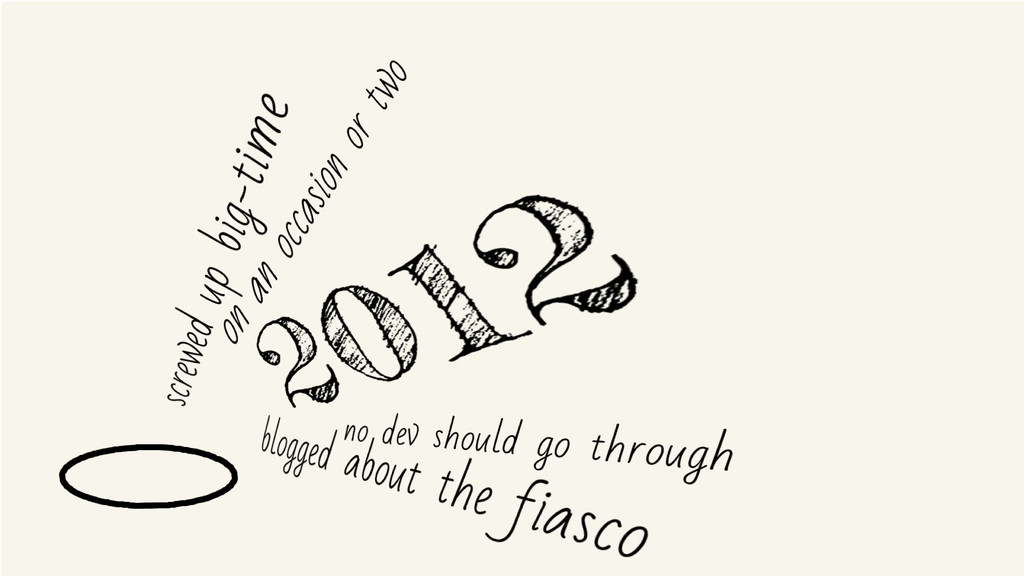 screwed up big-time
on an occasion or two
2012
no dev should go through
blogged about the fiasco